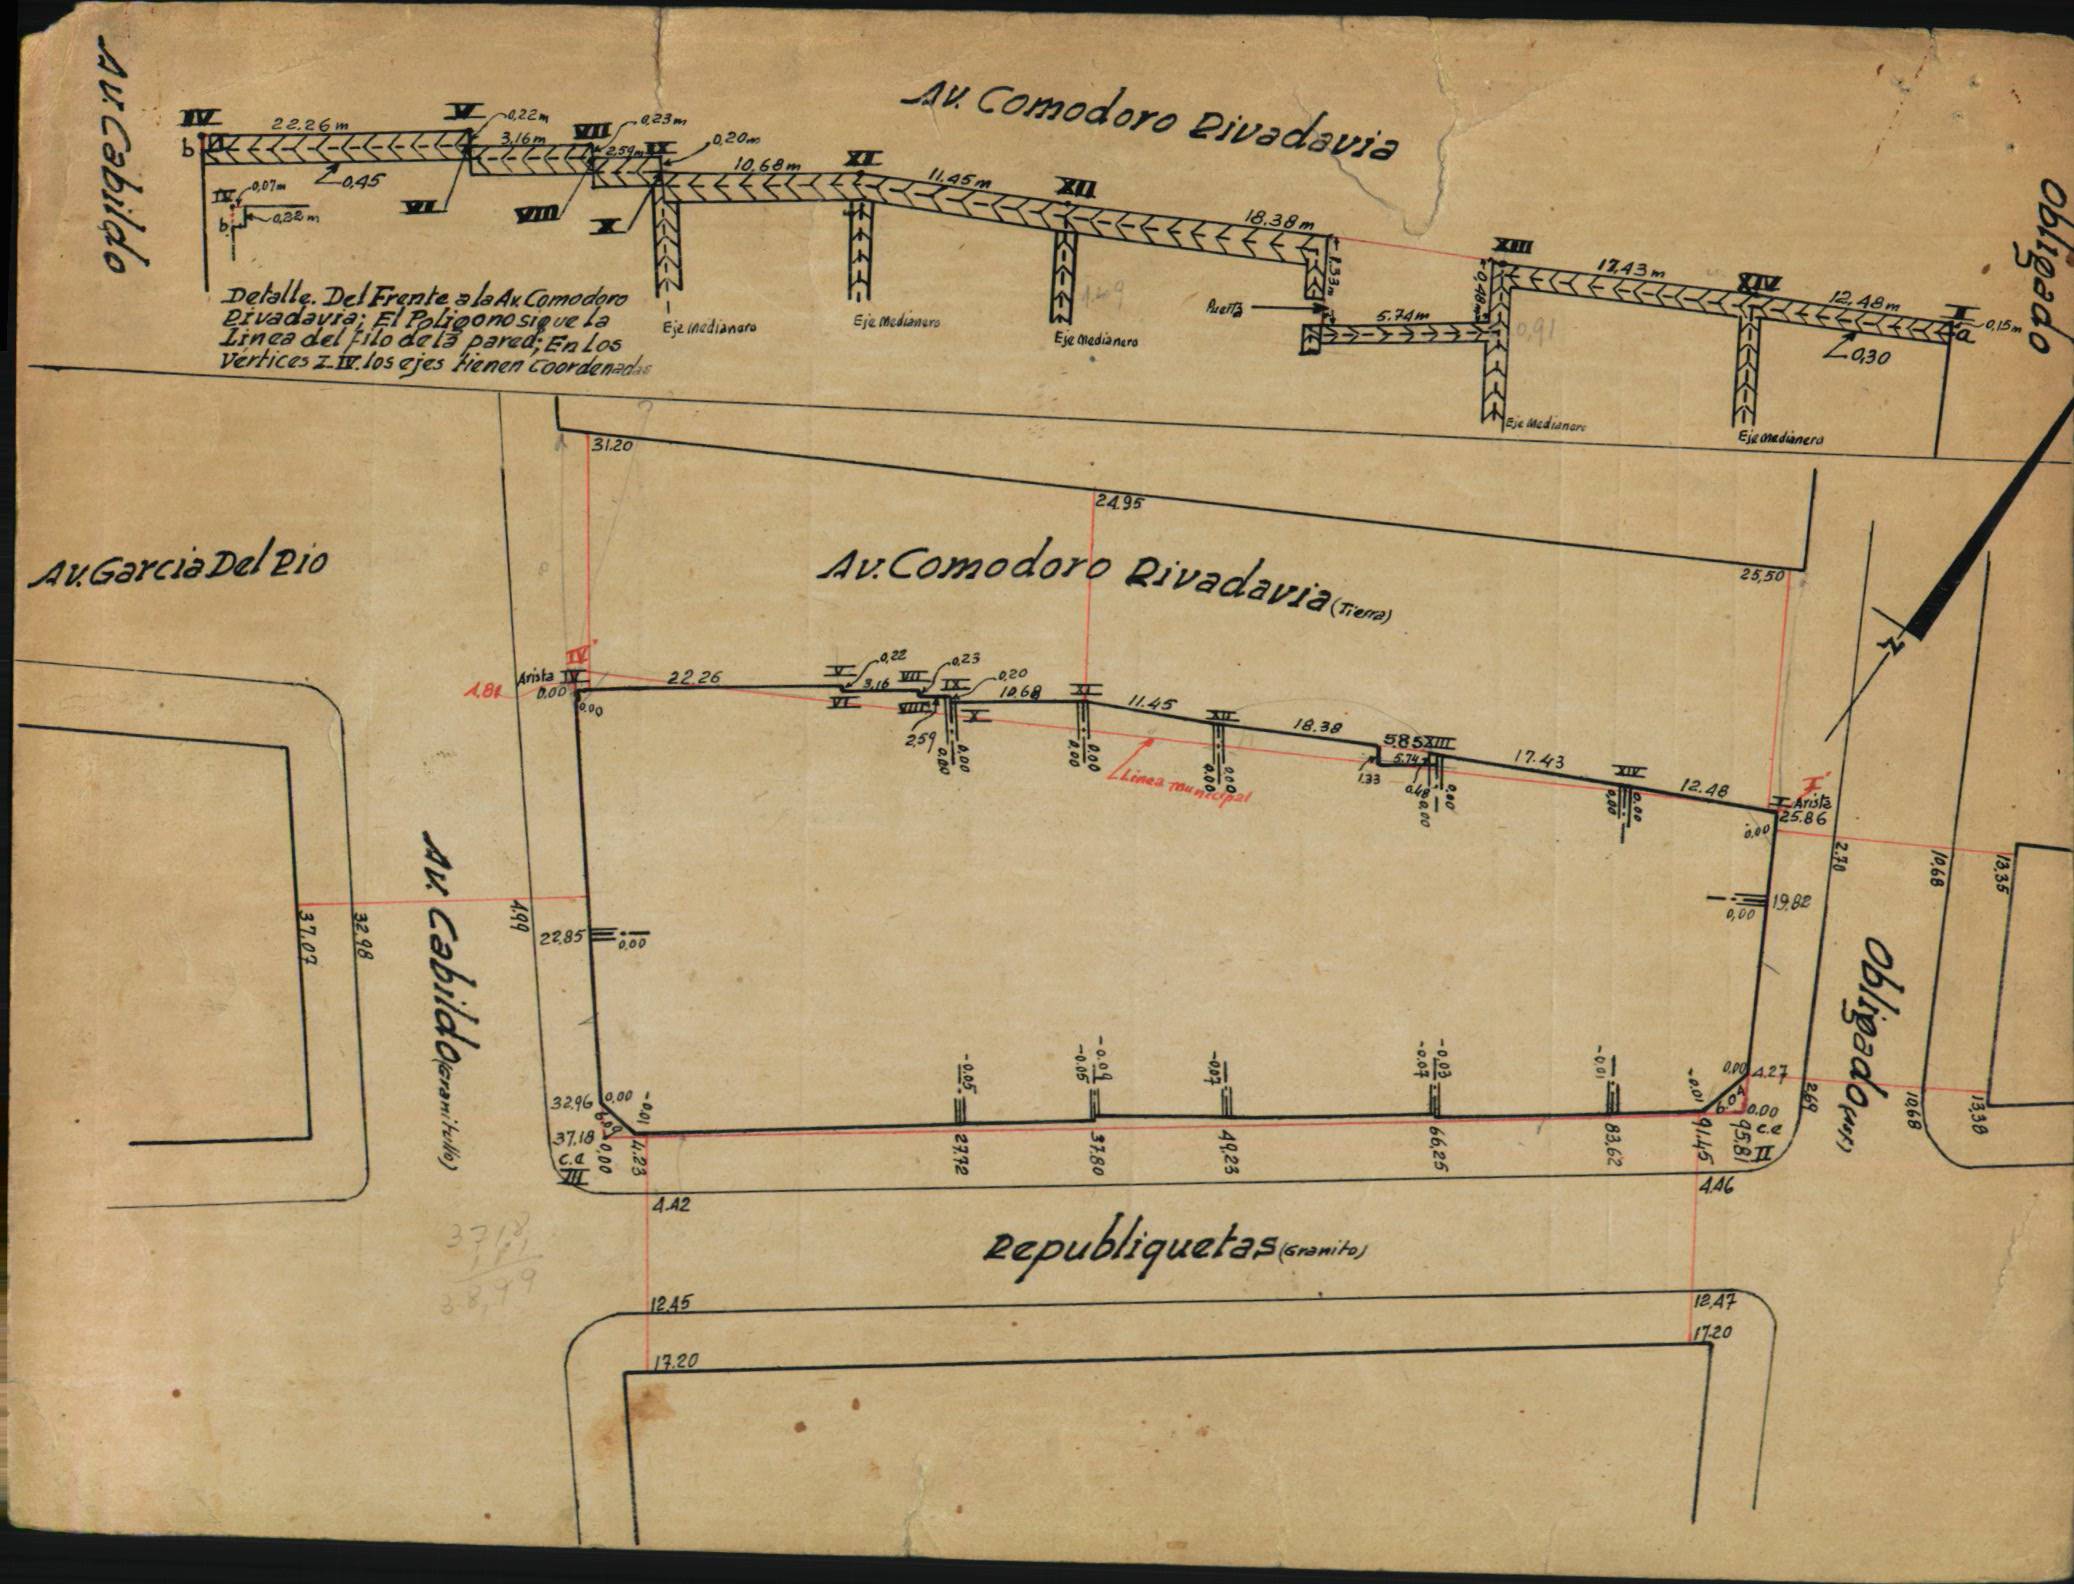 Av. Cabildo
Av. Comodoro Rivadavia
Obligado
IV
22.26 m
V
0,22 m
3,16 m
VII
0,23 m
2,59 m
IX
0,20 m
10,68 m
XI
11.45 m
XII
18.38 m
XIII
17.43 m
XIV
12,48 m
I
0,15 m
a
b
0,45
IV
0,07 m
0,22 m
b
VI
VIII
X
1.33 m
0,48 m
Puerta
5.74 m
0,91
0,30
Eje Medianero
Eje Medianero
Eje Medianero
Eje Medianero
Eje Medianero
Detalle. Del Frente a la Av. Comodoro
Rivadavia; El Poligono sigue la
Linea del filo de la pared; En los
Vertices I-IV. los ejes tienen Coordenadas
31.20
24.95
25,50
Av. Garcia Del Rio
Av. Comodoro Rivadavia (Tierra)
IV'
Arista IV
0.00
0.00
1.81
22.26
V
0,22
3,16
VI
VII
0,23
VIII
2,59
IX
0,20
X
10.68
XI
11.45
XII
18.38
5.85
XIII
5.74
1.33
0.48
17.43
XIV
12.48
I'
I Arista
25.86
0.00
0.00
0.00
0.00
0.00
0.00
0.00
0.00
0.00
0.00
0.00
Linea municipal
2.70
10,68
13,35
19.82
0,00
37.07
32.98
4.99
22.85
0.00
Av. Cabildo (Granitullo)
Obligado (Asf.)
32.96
0.00
-0.01
37.18
0,00
c.a
III
4.23
-0.05
27.72
-0.05
-0.09
37.80
-0.07
49.23
-0.07
-0.03
66,25
-0.01
83,62
-0.01
91.45
0.00
4.27
0.00
c.a
95.81
II
2.69
10.68
13,38
4.42
4.46
Republiquetas (Granito)
3718
12.45
12,47
17.20
17.20